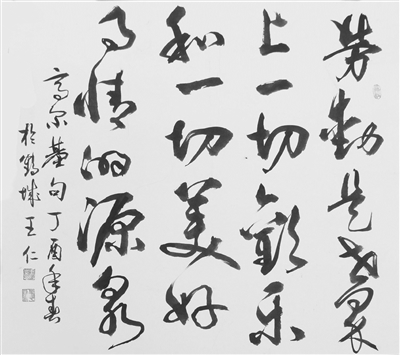 劳动是世界
上一切欢乐
和一切美好
事情的源泉
高尔基句丁酉年春
於鹤城王仁